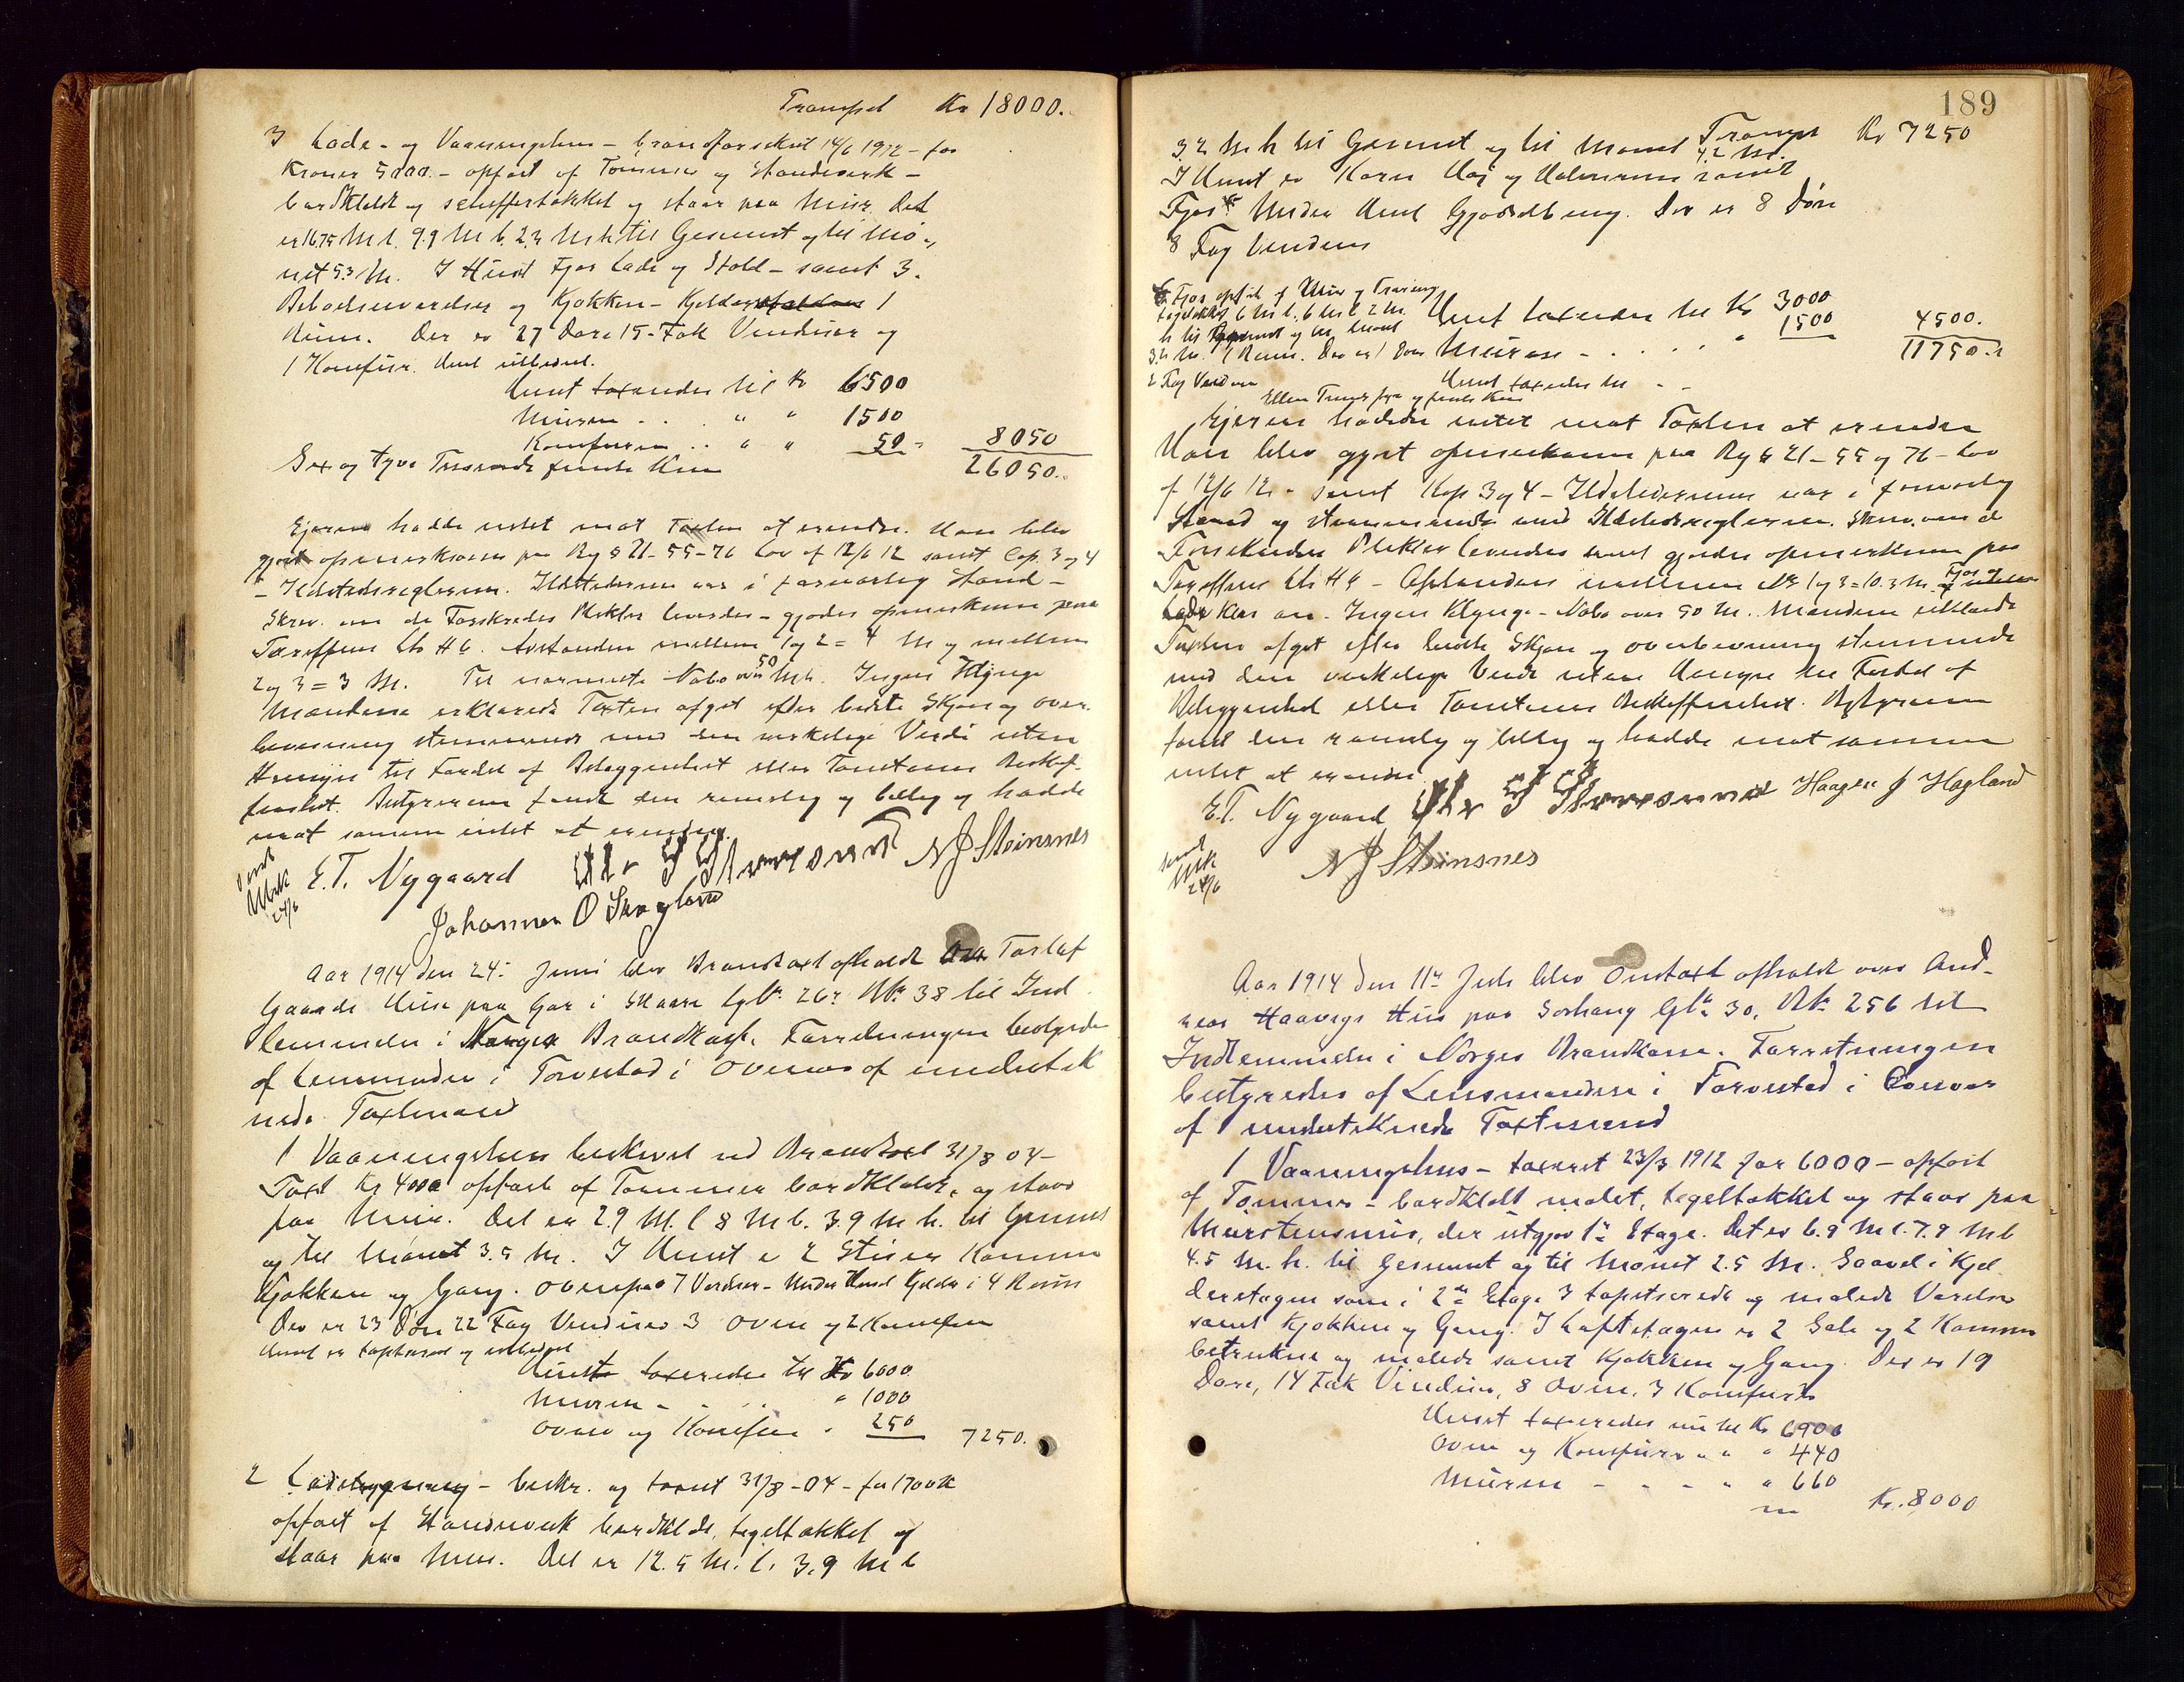 Transport Kr 18000.
3 Lade- og Vaaningshus - brandforsikret 14/6 1912 - for
Kroner 5000.- opført af Tømmer og Standverk -
bordklædt og skiffertækket og staar paa Mur. Det
er 16.75 M l. 9.9 M b. 2.3 M h til Gesimst og til Mø-
net 5.3 M. I Huset Fjøs Lade og Stald - samt 3
Beboelsesværelser og Kjøkken - Kjelder 1
Rum. Der er 27 Døre 15 Fak Vinduer og
1 Komfur. Huset
Huset taxeredes til Kr 6500
Muren - . . " " 1500
Komfuren .. " " 50 - 8050
Sex og tyve Tusende femti Kron 26050..
Ejeren hadde intet mot Taxten at erindre. Han blev
gjort opmerksom paa Byg § 21-55-76 Lov af 12/6 12 samt Cap. 3 og 4
- Ildstedsreglerne. Ildstederne var i forsvarlig Stand -
Skrev. om de Forskredes Plikter leveredes - gjordes opmerksom paa
Tariffens Litr H 6. Avstanden mellem 1 og 2 = 4 M og mellem
2 og 3 = 3 M. Til nærmeste Nabo over 50 Mtr. Ingen Klynge
Mændene erklærede Taxten afgit efter bedste Skjøn og over-
bevisning stemmende med den virkelige Verdi uten
Hensyn til Fordel af Beliggenhet eller Tomtens Beskaf-
fenhet. Bestyreren fandt den rimelig og billig og hadde
mot samme intet at erindre.
E.T. Nygaard N J Steinsnes
Johannes O Skogland
24/6
Aar 1914 den 24. Juni blev Brandtaxt afholdt over Torlaf
Gaards Huse paa Gar i Skaare Gbr. 26 Br. 38 til Ind
lemmelse i Norges Brandkasse. Forretningen bestyredes
af Lensmanden i Torvestad i Overvær af undertek
nede Taxtmænd
1 Vaaningshus beskrevet ved Brandtaxt 31/8 04 -
Taxt Kr 4000 opført af Tømmer bordklædt, og staar
paa Mur. Det er 2.9 M. l 8 M b. 3.9 M h. til Gesims
og til Mønet 3.5 M. I Huset er 2 Stuer Kammer
Kjøkken og Gang. Ovenpaa 7 Værelser - Under Huset Kjelder i 4 Rum
Der er 23 Døre 22 Fag Vinduer 3 Oven og 2 Komfur
Huset er tapetseret og
Huset taxeredes til Kr 6000
Muren - . .. " 1000
Oven og Komfur " 250 7250.
2 Ladebygning - beskr. og taxeret 31/8 - 04 - for 1700 Kr
opført af Standverk bordklædt, tegltækket og
staar paa Mur. Det er 12.5 M. l. 3.9 M b
189
3.2 M h til Gesimst og til Mønet 4.2 M. Transport Kr 7250
I Huset er Korn Høi og samt
Fjøs Under Huset Gjødselbing. Der er 8 Døre
8 Fag Vinduer
Fjøs opført af Mur og
tegltækket 6 M l. 6 M b 2 M
h til Gesimst og til Mønet
3.4 M. 1 Rum. Der er 1 Dør
2 Fag Vinduer
Huset taxeredes til Kr 3000
Muren - . . . " 1500 4500.
Huset taxeredes til - - 11750.-
Elleve Tusen syv og femti Kron
Ejeren hadde intet mot Taxten at erindre
Han blev gjort opmerksom paa Byg § 21-55 og 76 - Lov
af 12/6 12 - samt Kap 3 og 4 - Ildstederne var i forsvarlig
Stand og stemmende med Ildstedsreglerne. Skrev. om de
Forsikredes Plikter leveredes samt gjordes opmerksom paa
Tariffens Litr H 6 - Afstanden mellem Nr 1 og 3 = 10.3 M Fjøs og
Lade - Ingen Klynge - Nabo over 50 M. Mændene erklærede
Taxten afgit efter bedste Skjøn og overbevisning stemmende
med den virkelige Verdi uten Hensyn til Fordel af
Beliggenhed eller Tomtens Beskaffenhed. Bestyreren
fandt den rimelig og billig og hadde mot samme
intet at erindre.
E.T. Nygaard Haagen J Hagland
N J Steinsnes
24/6
Aar 1914 den 11te Juli blev Omtaxt afholdt over And-
reas Haavigs Hus paa Sørhaug Gbr 30. Br. 256 til
Indlemmelse i Norges Brandkasse. Forretningen
bestyredes af Lensmanden i Torvestad i Overvær
af undertegnede Taxtmænd
1 Vaaningshus - taxeret 23/3 1912 for 6000 - opført
af Tømmer - bordklædt malet, tegeltækket og staar paa
Murstensmur, der utgjør 1ste Etage. Det er 6.9 M l. 7.9 M b
4.5 M. h. til Gesimset og til Mønet 2.5 M. Saavel i Kjel
deretagen som i 2den Etage 3 tapetserede og malede Værelser
samt Kjøkken og Gang. I Loftetagen er 2 Sale og 2 Kammer
betrukne og malede samt Kjøkken og Gang. Der er 19
Døre, 14 Fak Vinduer, 8 Oven, 3 Komfurer
Huset taxeredes nu til Kr 6900
Oven og Komfurer " " " 440
Muren - - - " " 660
Kr. 8000